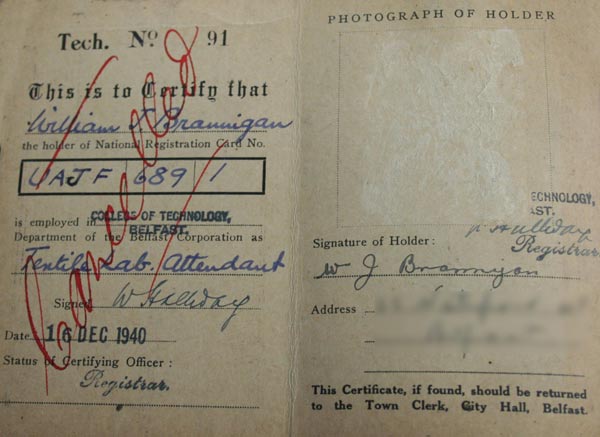 Tech. No. 91
This is to Certify that
William J Brannigan
the holder of National Registration Card No.
UAJF 689 1
is employed in COLLEGE OF TECHNOLOGY,
BELFAST.
Department of the Belfast Corporation as
Textile Lab. Attendant
Signed W Halliday
Date 16 DEC 1940
Status of Certifying Officer :
Registrar.
Cancelled
PHOTOGRAPH OF HOLDER
ECHNOLOGY,
AST.
Halliday
Registrar
Signature of Holder :
W J Brannigan
Address
This Certificate, if found, should be returned
to the Town Clerk, City Hall, Belfast.